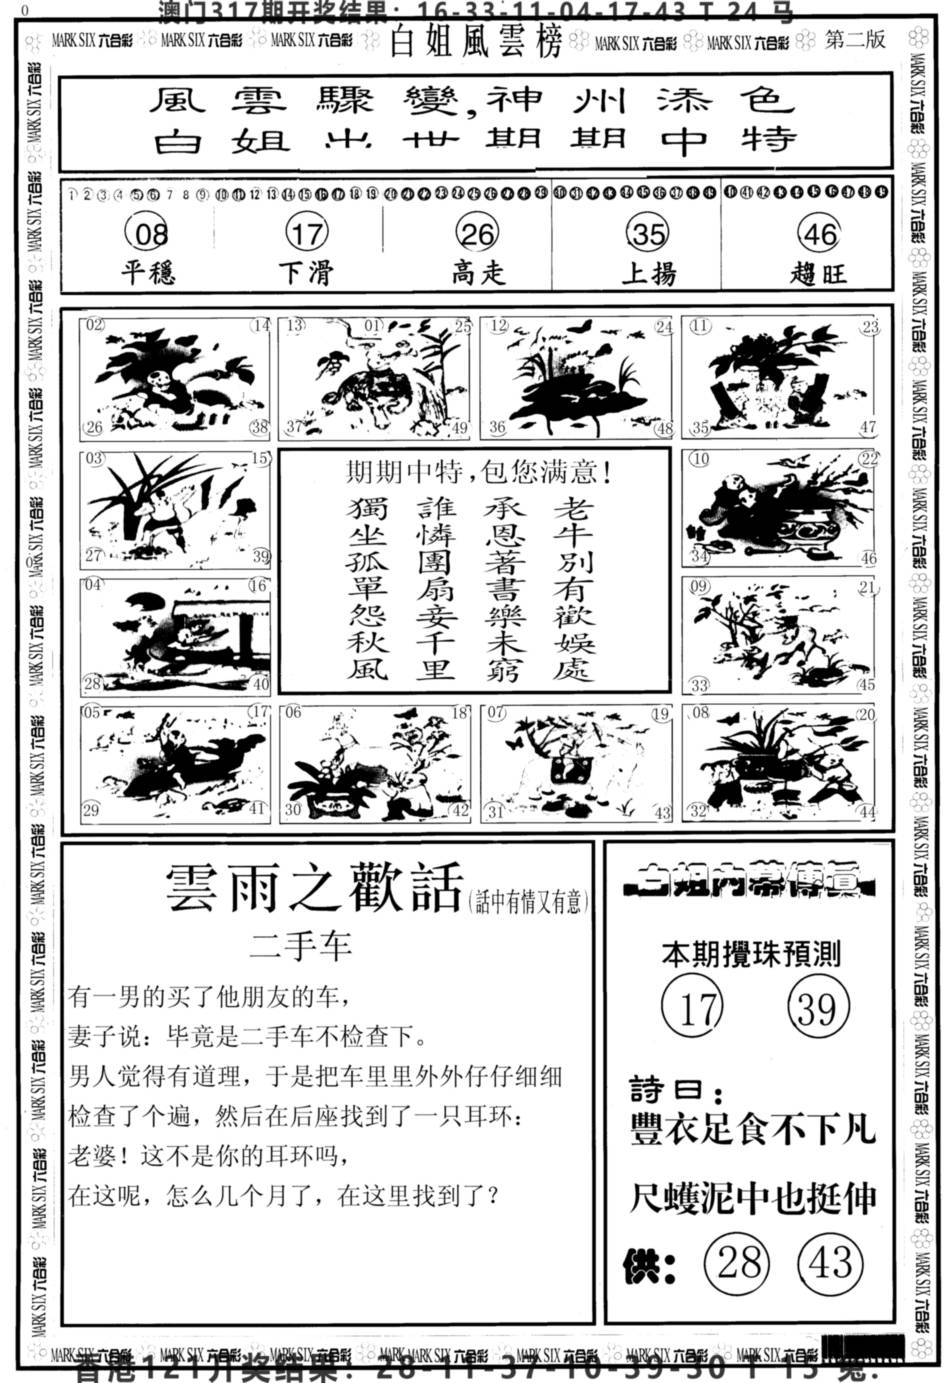 0
澳门317期开奖结果：16-33-11-04-17-43 T 24 马
MARK SIX 六合彩 MARK SIX 六合彩 MARK SIX 六合彩 白姐風雲榜 MARK SIX 六合彩 MARK SIX 六合彩 第二版
風雲驟變，神州添色
白姐出世期期中特
1 2 3 4 5 6 7 8 9 10 11 12 13 14 15 16 17 18 19 20 21 22 23 24 25 26 27 28 29 30 31 32 33 34 35 36 37 38 39 40 41 42 43 44 45 46 47 48 49
08 17 26 35 46
平穩 下滑 高走 上揚 趨旺
02 14 13 01 25 12 24 11 23
26 38 37 49 36 48 35 47
03 15 10 22
27 39 34 46
04 16 09 21
28 40 33 45
期期中特，包您满意！
老牛別有歡娛處
承恩著書樂未窮
誰憐團扇妾千里
獨坐孤單怨秋風
05 17 06 18 07 19 08 20
29 41 30 42 31 43 32 44
雲雨之歡話(話中有情又有意)
二手车
有一男的买了他朋友的车，
妻子说：毕竟是二手车不检查下。
男人觉得有道理，于是把车里里外外仔仔细细
检查了个遍，然后在后座找到了一只耳环：
老婆！这不是你的耳环吗，
在这呢，怎么几个月了，在这里找到了？
白姐内幕傳真
本期攪珠預測
17 39
詩曰：
豐衣足食不下凡
尺蠖泥中也挺伸
供： 28 43
MARK SIX 六合彩 MARK SIX 六合彩 MARK SIX 六合彩 MARK SIX 六合彩 MARK SIX 六合彩 MARK SIX 六合彩 MARK SIX 六合彩
香港121开奖结果：28-11-37-10-39-30 T 15 兔.